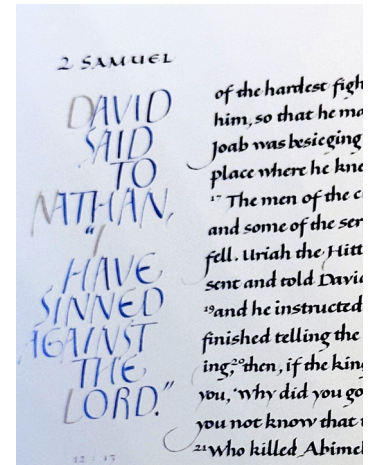 2 SAMUEL
DAVID
SAID
TO
NATHAN,
"I
HAVE
SINNED
AGAINST
THE
LORD."
12:13
of the hardest figh
him, so that he ma
Joab was besieging
place where he kne
17 The men of the c
and some of the ser
fell. Uriah the Hitt
sent and told David
19and he instructed
finished telling the
ing,20then, if the king
you, 'Why did you go
you not know that t
21Who killed Abimel